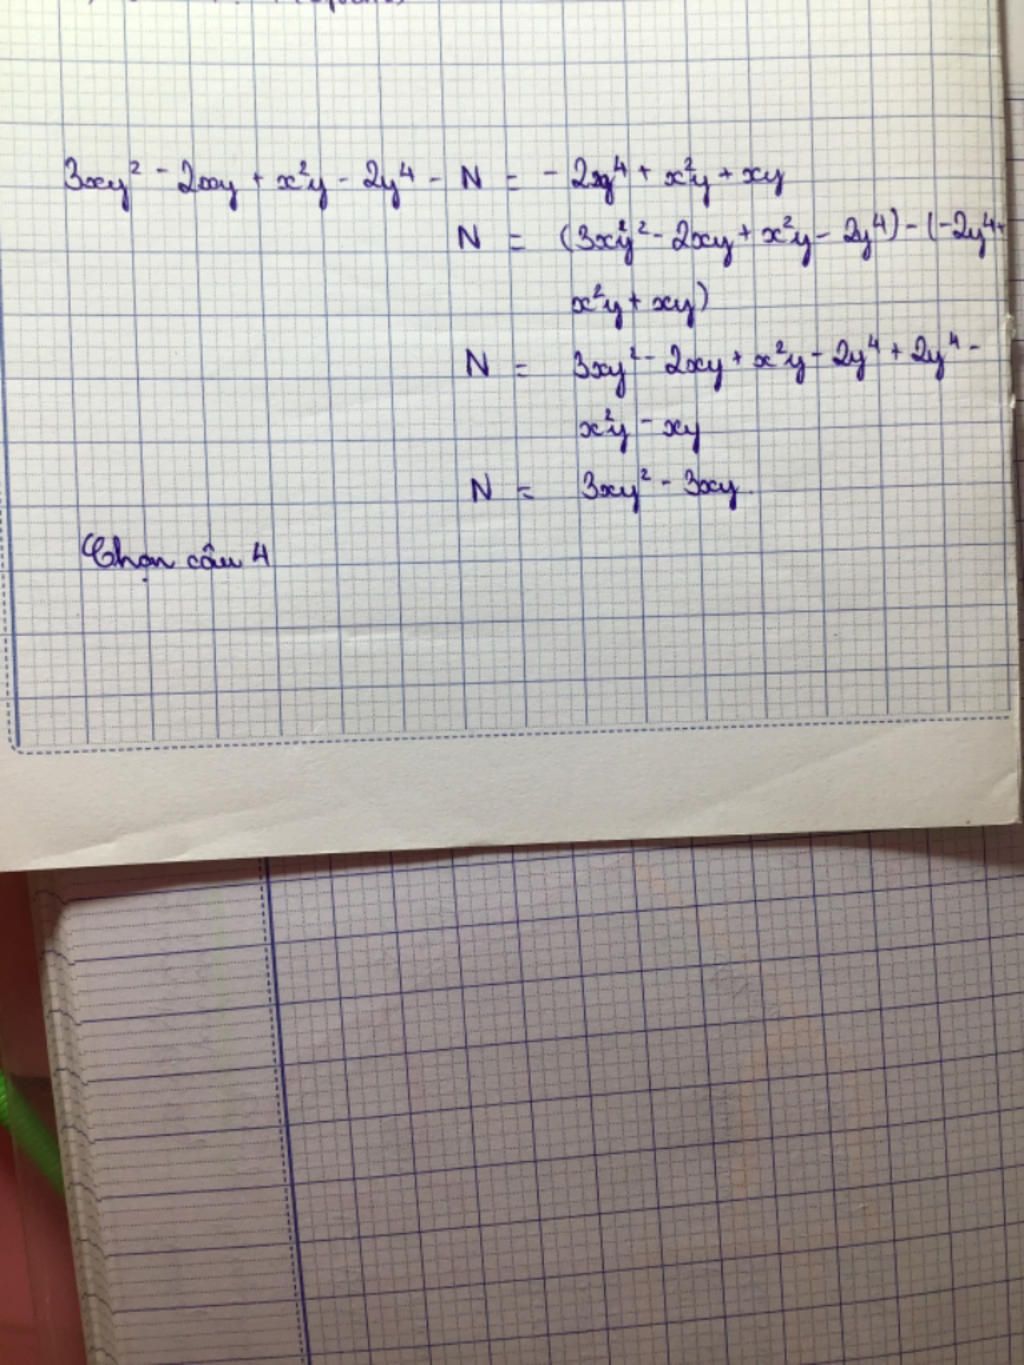 3xy² - 2xy + x²y - 2y⁴ - N = - 2y⁴ + x²y + xy
N = (3xy² - 2xy + x²y - 2y⁴) - (-2y⁴ +
x²y + xy)
N = 3xy² - 2xy + x²y - 2y⁴ + 2y⁴ -
x²y - xy
N = 3xy² - 3xy.
Chọn câu 4